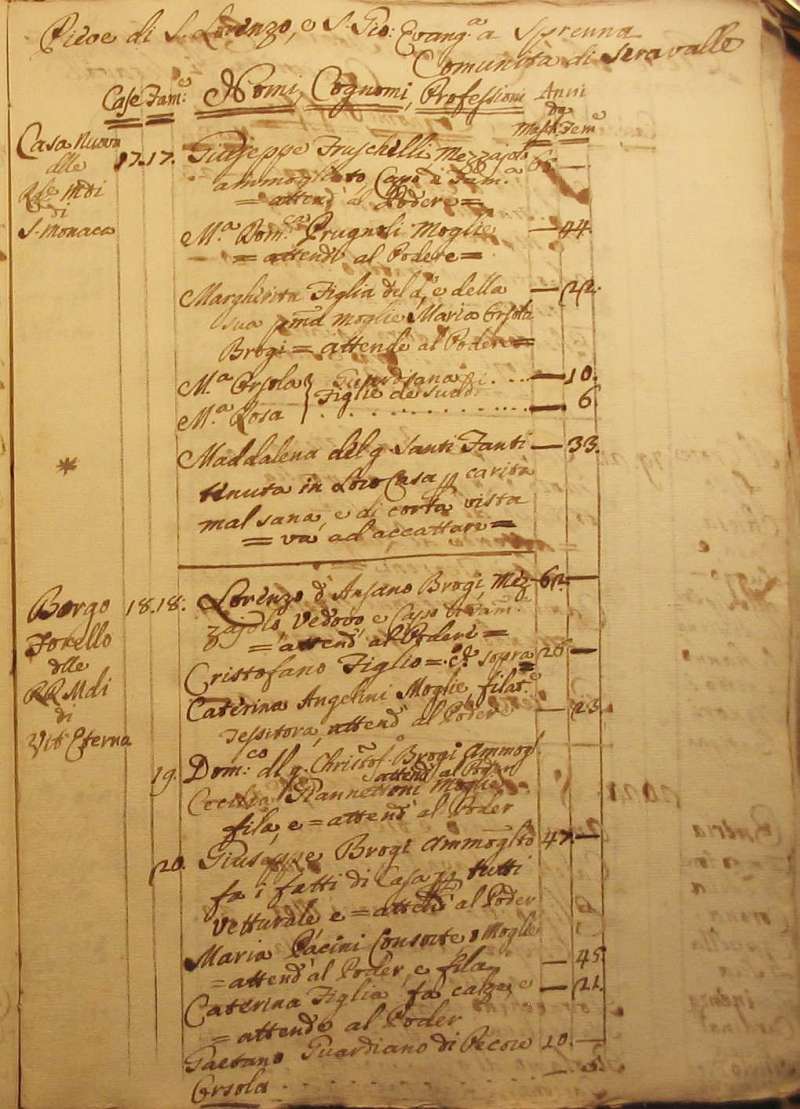 Pieve di S. Lorenzo, e S. Gio: Evang.a a
Comunità di Seravalle
Case Fam.e Nomi, Cognomi, Professioni Anni
Mas. Fem.e
Casa Nuova
delle
di
S. Monaca
17. 17. Giuseppe Fruschelli Mezzajolo —
ammogliato, Capo di Fam.a
= attend.e al Podere =
M.a Dom.ca Prugnoli Moglie — 44.
= attende al Podere =
Margherita Figlia del d.o, e della — 22.
sua moglie Maria Orsola
Brogi = attende al Podere =
M.a Orsola — 10.
Figlie de
M.a Rosa — 6
*
Maddalena del q. Santi Fanti — 33.
tenuta in Loro Casa p carità
mal sana, e di corta vista
= va ad accattare =
Borgo
delle
RR Mdi
di
Vit.a Eterna
18. 18. Lorenzo d'Ansano Brogi, Mez — 62. —
zajolo Vedovo e Capo di Fam.
= attend.e al Podere =
Cristofano Figlio = sopra —
Caterina Angelini Moglie, filat.e — 23.
Tessitora, attend.e al Poder
19. Dom.co del q. Christof.o Brogi Ammogl.
attend al Poder
Cecilia Giannettoni Moglie
fila, e = attend.e al Poder
20. Giuseppe Brogi Ammoglio 47. —
fa i fatti di Casa p tutti
Vetturale e = attend.e al Poder
Maria Pacini Consorte o Moglie — 45
= attend.e al Poder, e fila
Caterina Figlia fa calze, e — 21.
= attende al Poder
Gaetano Guardiano di Pecore 10. —
Orsola